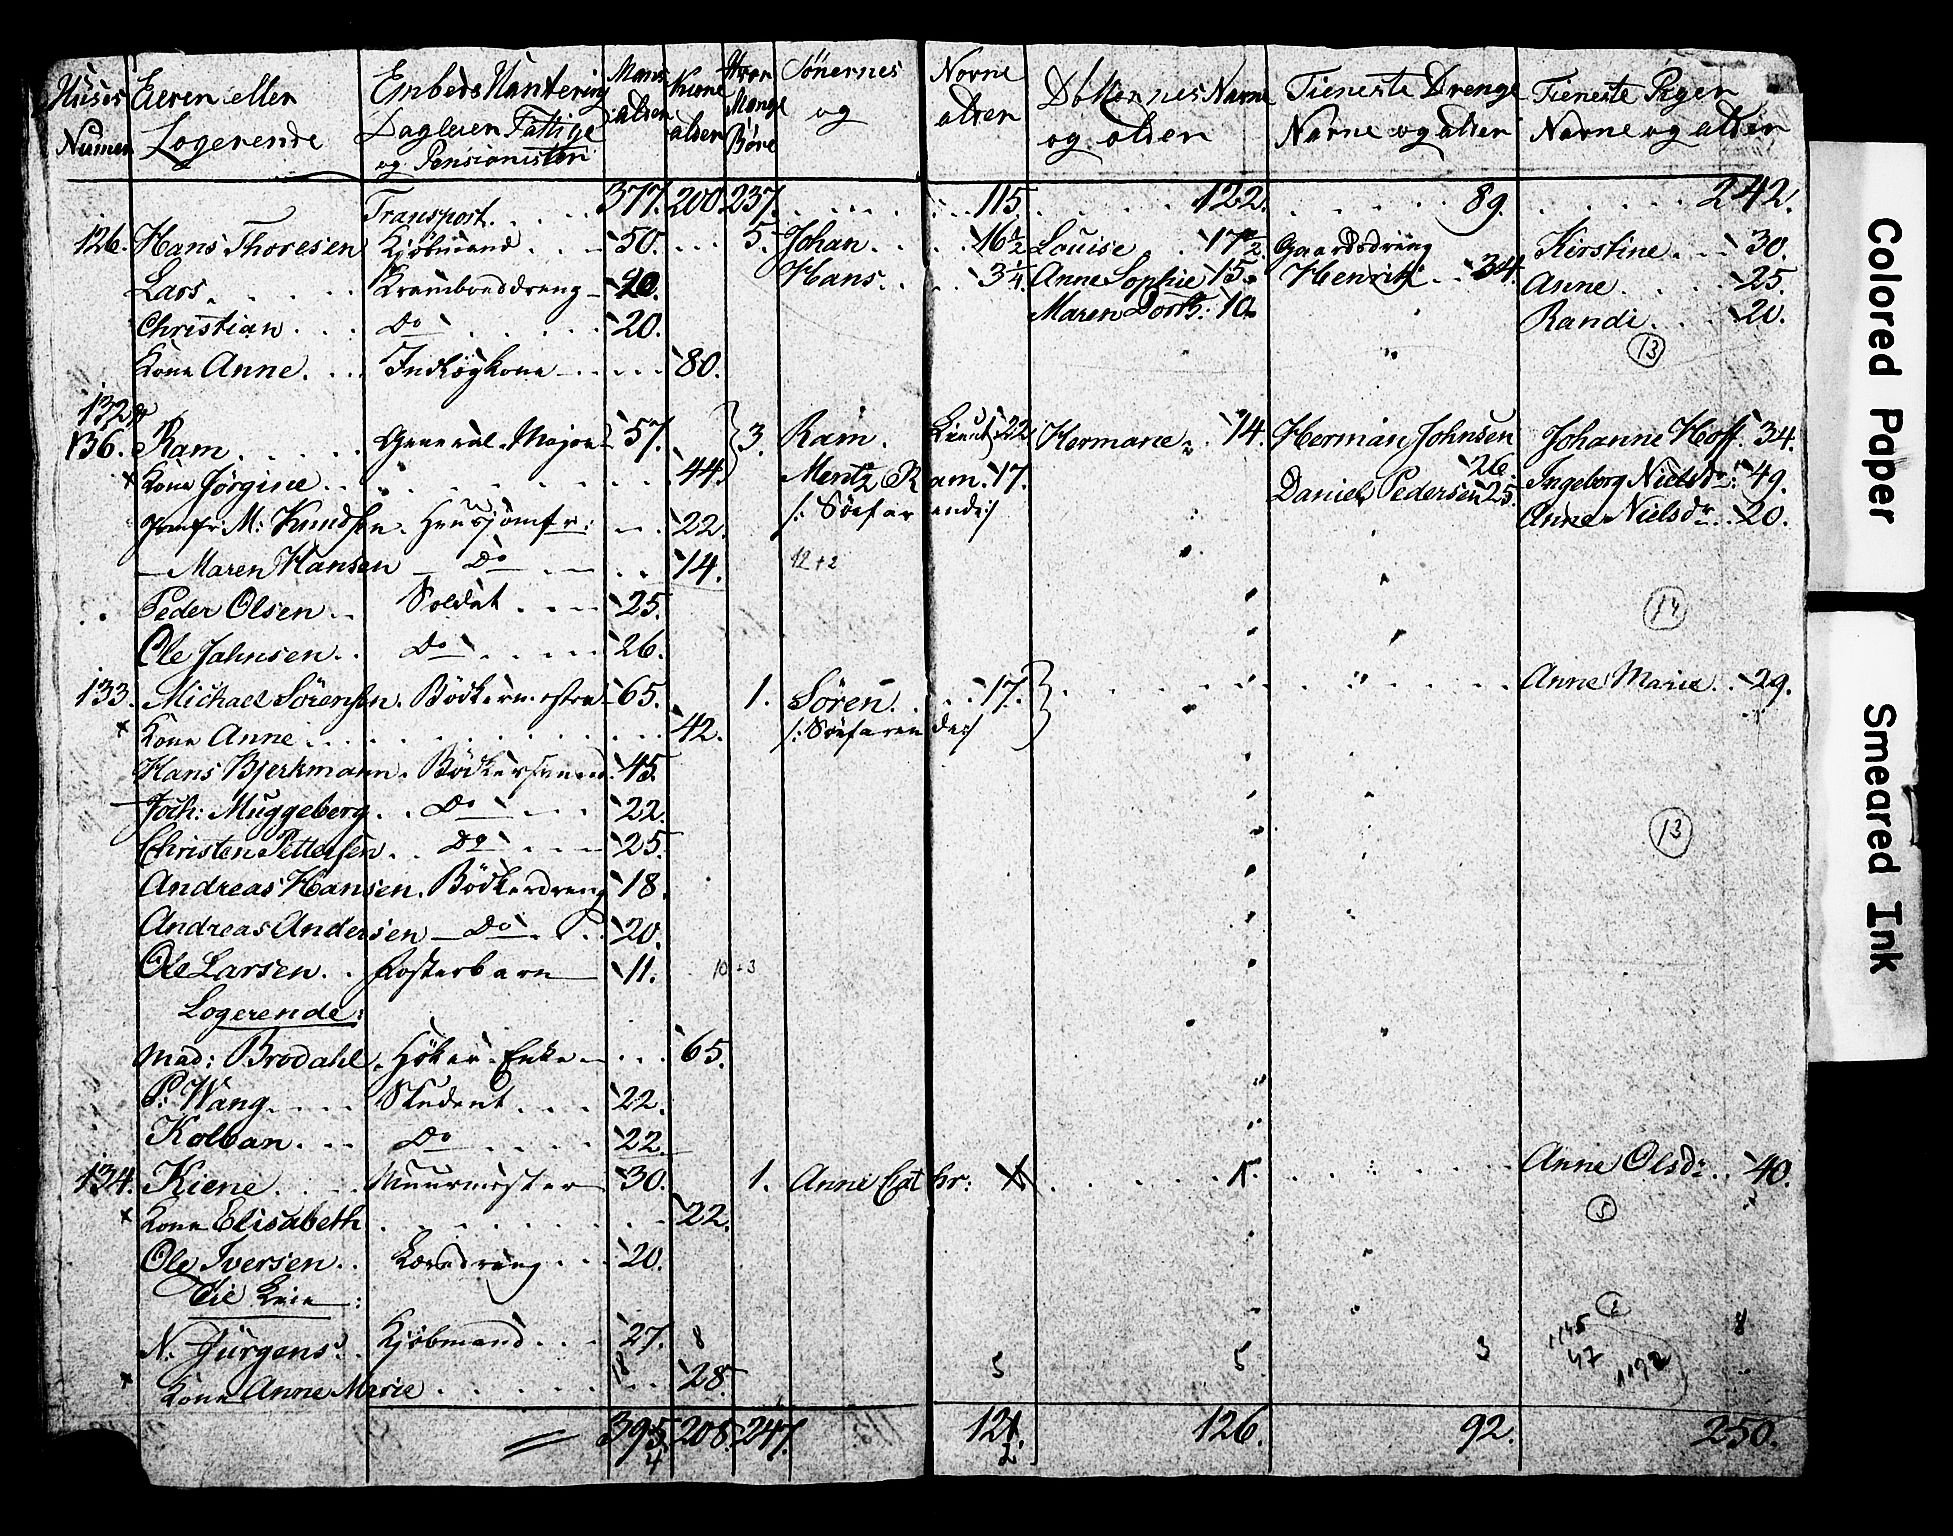 Huses Eieren eller Embeds Hantering Mans Kone Hvor Sönernes Navne Döttrernes Navne Tieneste Drenge Tieneste Piger
Numer Logerende Dagleien Fattige og Pensionister alder alder Mange Börn og alder og alder Navne og alder Navne og alder
Transport 377. 200. 237. 115 122. 89. 242.
126. Hans Thoresen Kjöbmand 50. 5. Johan 16½ Louise 17½ Gaardsdreng Kirstine 30.
Lars Krambooddreng 20. Hans 3¼ Anne Sophie 15. Henrik 34. Anne 25
Christian Do 20. Maren Dorth: 10 Randi 20.
Kone Anne 80. 13
132 &
136. Ram General-Major 57. 3. Ram Lieut: 22 Hermane 14. Herman Johnsen 26 Johanne Hoff 34.
x Kone Jörgine 44. Mentz Ram 17. Daniel Pedersen 25. Ingeborg Nielsdr: 49.
Jomfr: M: Knudsen Huusjomfr: 22. /: Söefarende:/ Anne Nielsdr 20.
— Maren Hansen Do 14. 12+2
Peder Olsen Soldat 25. 14
Ole Jahnsen Do 26.
133. Michael Sörensen Bödkermester 65. 1. Sören 17. Anne Marie 29.
x Kone Anne 42. /: Söefarende:/
Hans Bjerkmann Bödkersvend 45.
Joch: Muggeberg Do 22.
Christen Pettersen Do 25. 13
Andreas Hansen Bödkerdreng 18.
Andreas Andersen Do 20.
Ole Larsen Fosterbarn 11. 10+3
Logerende:
Mad: Brodahl Höker-Enke 65.
P: Wang Student 22.
Kolban Do 22.
134. Kiene Muurmester 30. 1. Anne Cathr: 1. Anne Olsdr 40.
x Kone Elisabeth 22. 5
Ole Iversen Læredreng 20.
Til Leie:
N. Jürgens Kjöbmand 27. 8 2 1145 8
x Kone Anne Marie 18 28. 5 5 3 47 1192
395. 208. 247. 121. 126. 92. 250.
4 2
Colored Paper
Smeared Ink